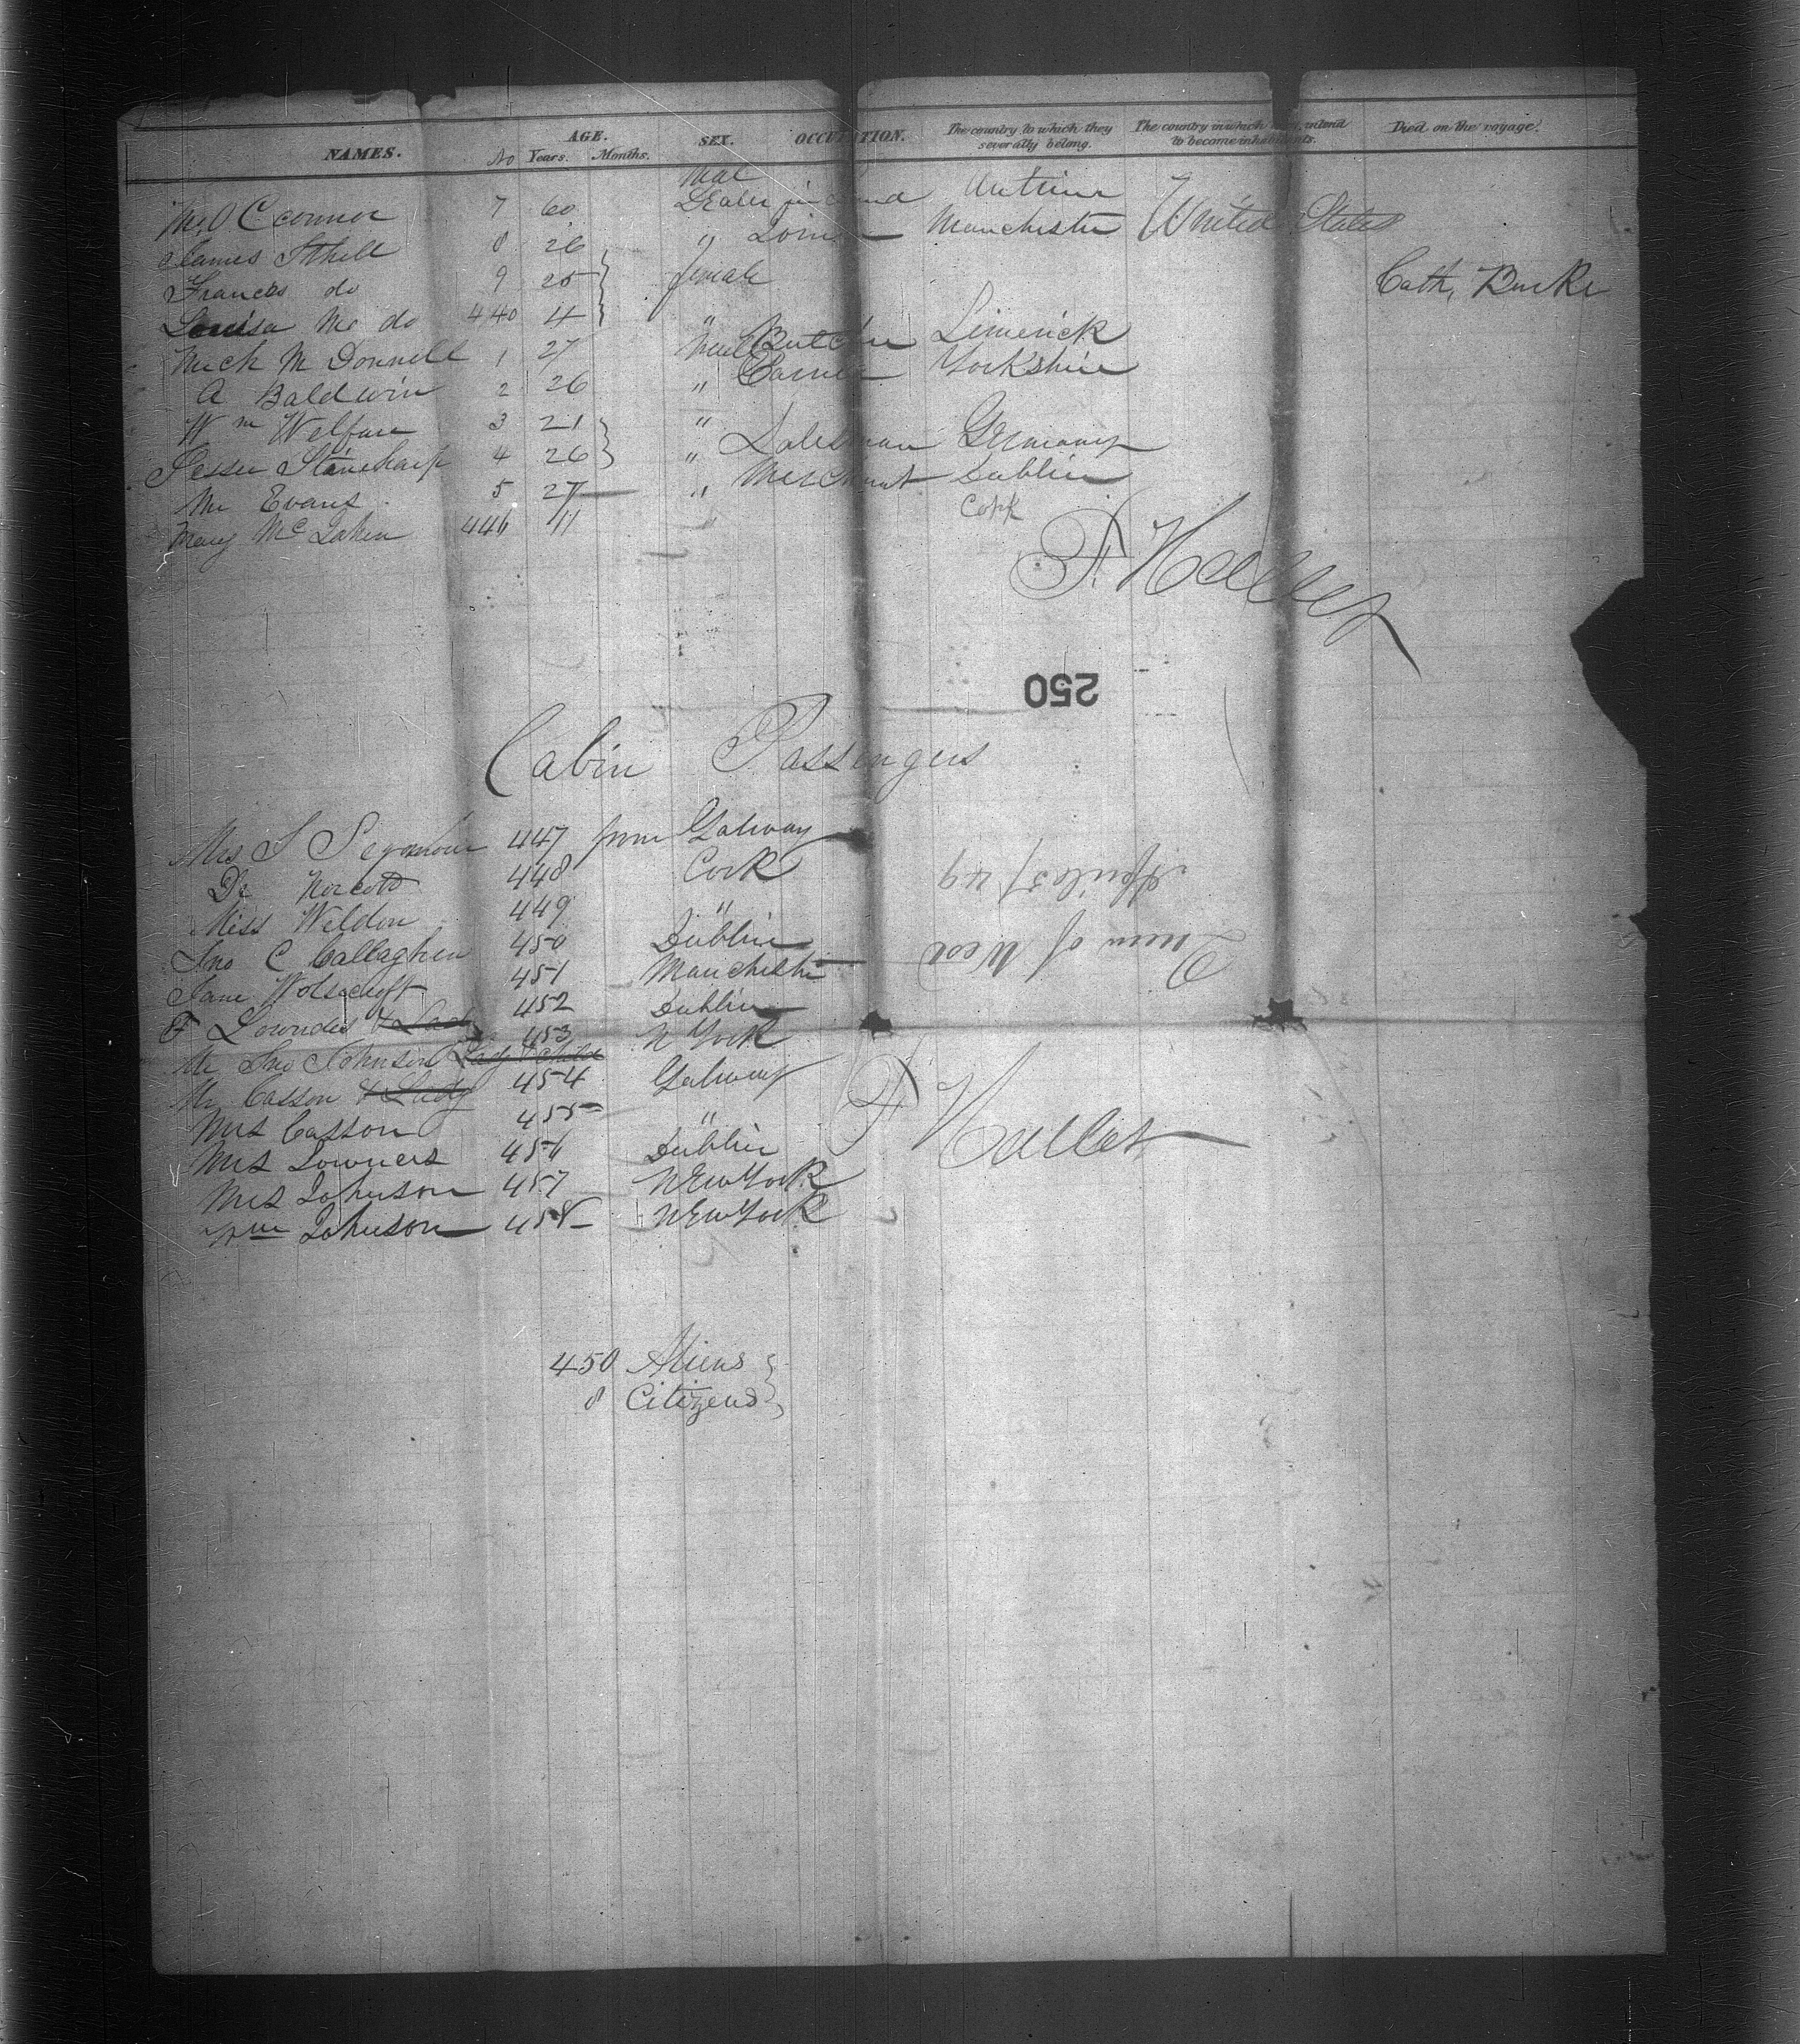 NAMES. No AGE. Years. Months. SEX. OCCUPATION. The country to which they severally belong. The country in which they intend to become inhabitants. Died on the voyage.
Mr O Cconnor 7 60 Male Dealer in Antrim
James Ithell 8 26 " Joiner Manchester United States
Frances do 9 25 female Cath, Burke
Louisa Mr do 440 4 "
Mich McDonnell 1 27 Male Butcher Limerick
A Baldwin 2 26 " Yorkshire
Wm Welfare 3 21 "
4 26 " Salesman Germany
Mr Evans 5 27 " Merchant Dublin
Mary Mc 446 11 " Cork
250
Cabin Passengers
Mrs S Seymour 447 from Galway
Dr Norcott 448 Cork
Miss Weldon 449 "
Jno C Callaghen 450 Dublin
Jane 451 Manchester
F Lowndes & Lady 452 Dublin
Mr Jno Johnson Lady & child 453 N York
Mr Casson & Lady 454 Galway
Mrs Casson 455 "
Mrs Lowners 456 Dublin
Mrs Johnson 457 New York
Wm Johnson 458 New York
F. Hallet
Queen of West
April 5/49
450 Aliens
8 Citizens